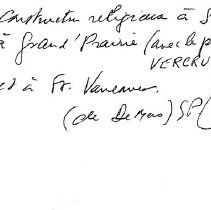 Constructeur religieux à S
à Grand'Prairie (avec le p
VERCRU
à Ft. Vancouver
(de De Mers) SP(